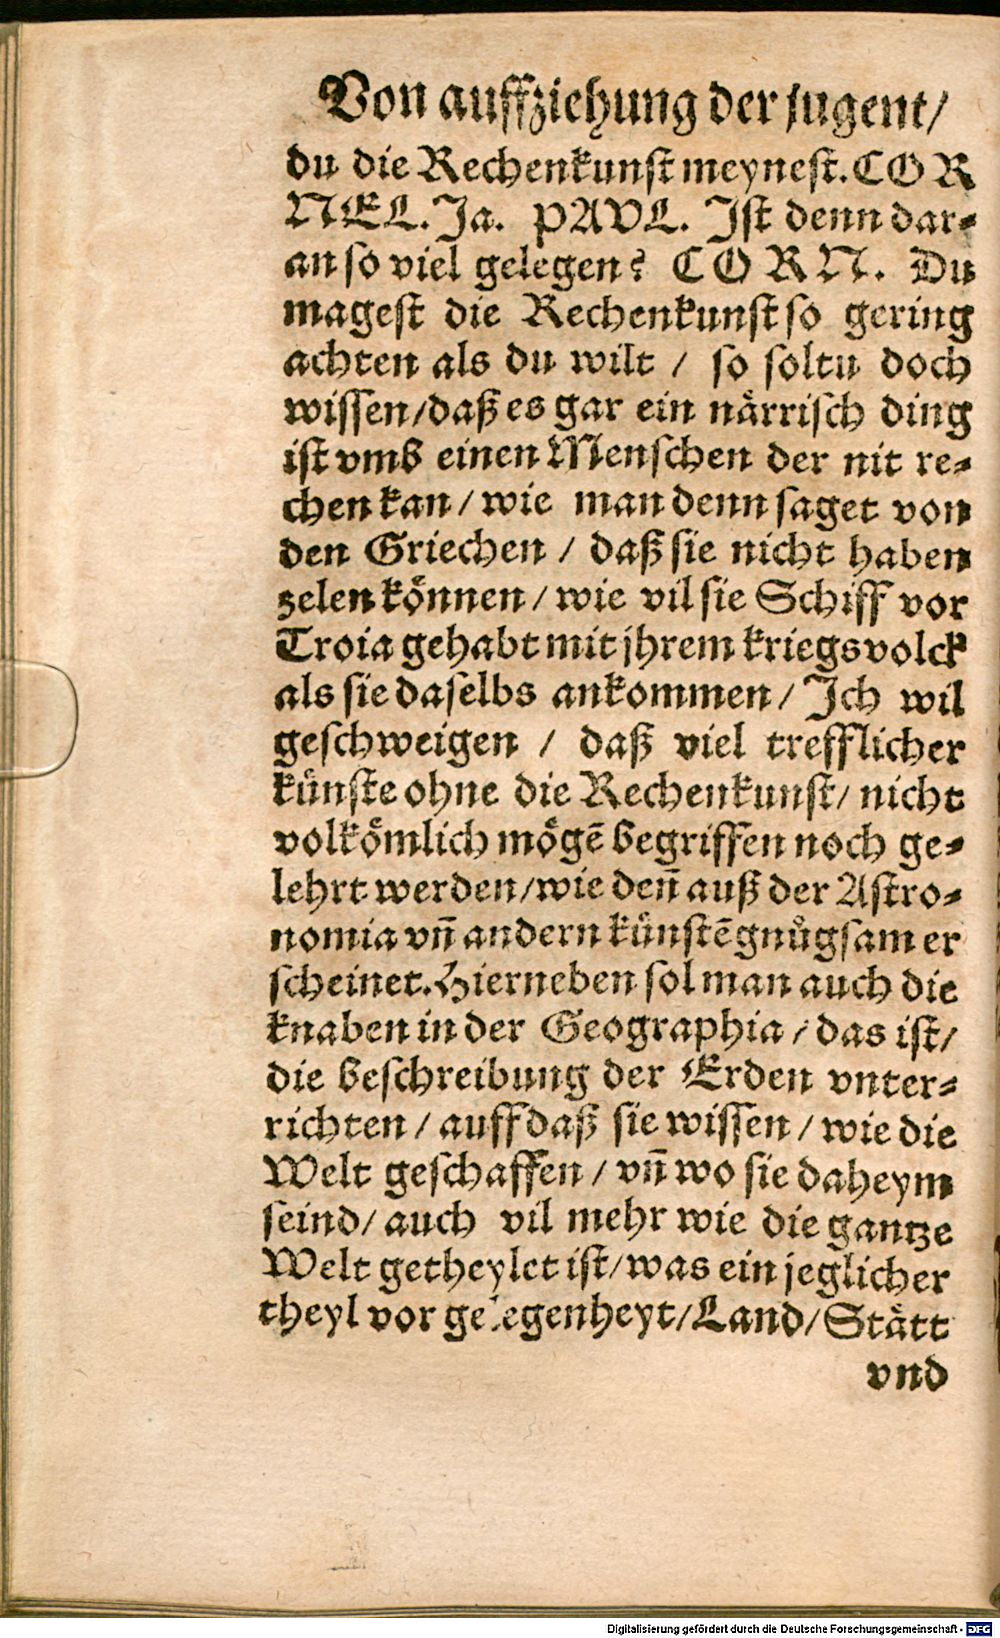 Von auffziehung der jugent/
du die Rechenkunst meynest. COR
NEL. Ja. PAVL. Ist denn dar-
an so viel gelegen? CORN. Du
magest die Rechenkunst so gering
achten als du wilt / so soltu doch
wissen/daß es gar ein naͤrrisch ding
ist vmb einen Menschen der nit re-
chen kan / wie man denn saget von
den Griechen / daß sie nicht haben
zelen koͤnnen / wie vil sie Schiff vor
Troia gehabt mit jhrem kriegsvolck
als sie daselbs ankommen / Ich wil
geschweigen / daß viel trefflicher
kuͤnste ohne die Rechenkunst/ nicht
volkoͤmlich moͤgē begriffen noch ge-
lehrt werden/wie deñ auß der Astro-
nomia vñ andern kuͤnstē gnuͦgsam er
scheinet. Hierneben sol man auch die
knaben in der Geographia / das ist/
die beschreibung der Erden vnter-
richten / auff daß sie wissen / wie die
Welt geschaffen / vñ wo sie daheym
seind/ auch vil mehr wie die gantze
Welt getheylet ist/was ein jeglicher
theyl vor gelegenheyt/Land/Staͤtt
vnd
Digitalisierung gefördert durch die Deutsche Forschungsgemeinschaft - DFG